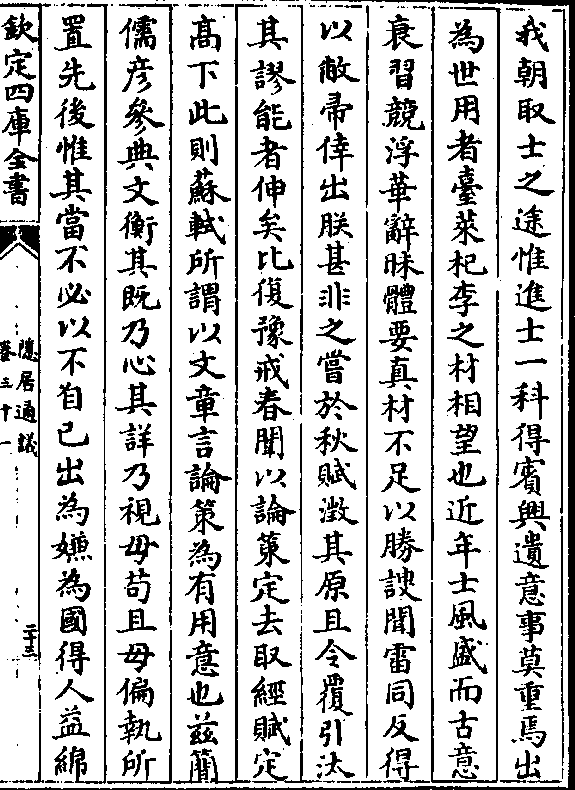 我朝取士之途惟進士一科得賓興遺意事莫重焉出
為世用者臺萊杞李之材相望也近年士風盛而古意
衰習競浮華辭昧體要真材不足以勝謏聞雷同反得
以敝帚倖出朕甚非之嘗於秋賦澂其原且令覆引汰
其謬能者伸矣比復豫戒春闈以論策定去取經賦定
高下此則蘇軾所謂以文章言論策為有用意也兹簡
儒彦參典文衡其既乃心其詳乃視毋苟且毋偏執所
置先後惟其當不必以不自己出為嫌為國得人益綿
欽定四庫全書
隱居通議
卷三十一
二十三